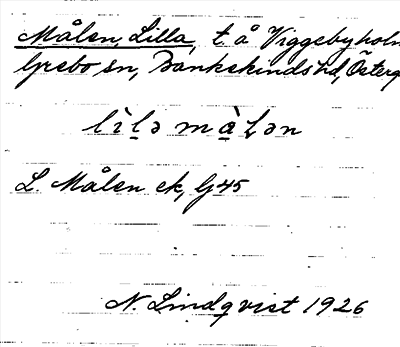 Målen, Lilla, t. å Viggebyholm
Grebo sn, Bankekinds hd, Österg
lìlə màlən
L. Målen ek, Gj 45
N. Lindqvist 1926